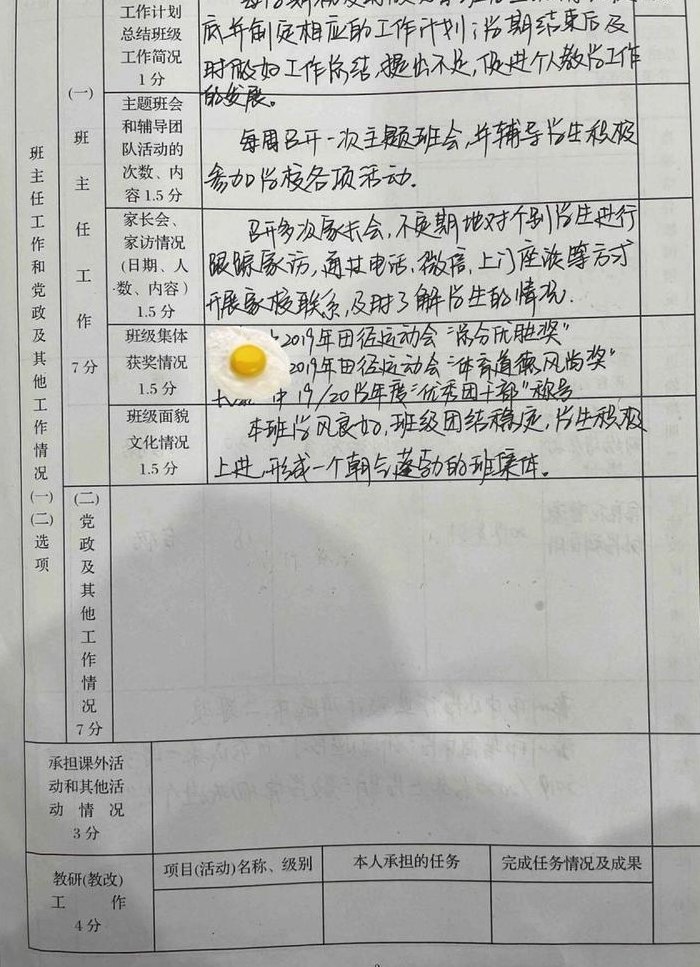 工作计划
总结班级
工作简况
1分
底并制定相应的工作计划;学期结束后及
时做好工作总结,提出不足,促进个人教学工作
的发展。
班主任工作和党政及其他工作情况(一)(二)选项
(一)班主任工作
7分
主题班会
和辅导团
队活动的
次数、内
容1.5分
每周召开一次主题班会,并辅导学生积极
参加学校各项活动.
家长会、
家访情况
(日期、人
数、内容)
1.5分
召开多次家长会,不定期地对个别学生进行
跟踪家访,通过电话,微信,上门座谈等方式
开展家校联系,及时了解学生的情况.
班级集体
获奖情况
1.5分
2019年田径运动会“总分优胜奖”
2019年田径运动会“体育道德风尚奖”
19/20学年度“优秀团干部”称号
班级面貌
文化情况
1.5分
本班学风良好,班级团结稳定,学生积极
上进,形成一个朝气蓬勃的班集体。
(二)党政及其他工作情况
7分
承担课外活
动和其他活
动 情 况
3分
教研(教改)
工 作
4分
项目(活动)名称、级别 本人承担的任务 完成任务情况及成果